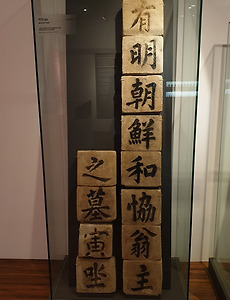 有明朝鮮和協翁主
之墓寅坐